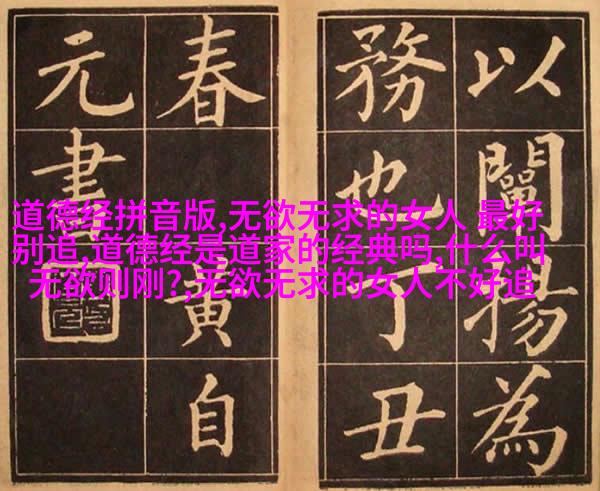 以闡揚為
務也丁丑
春 黃自
元書
道德经拼音版,无欲无求的女人 最好
别追,道德经是道家的经典吗,什么叫
无欲则刚?,无欲无求的女人不好追